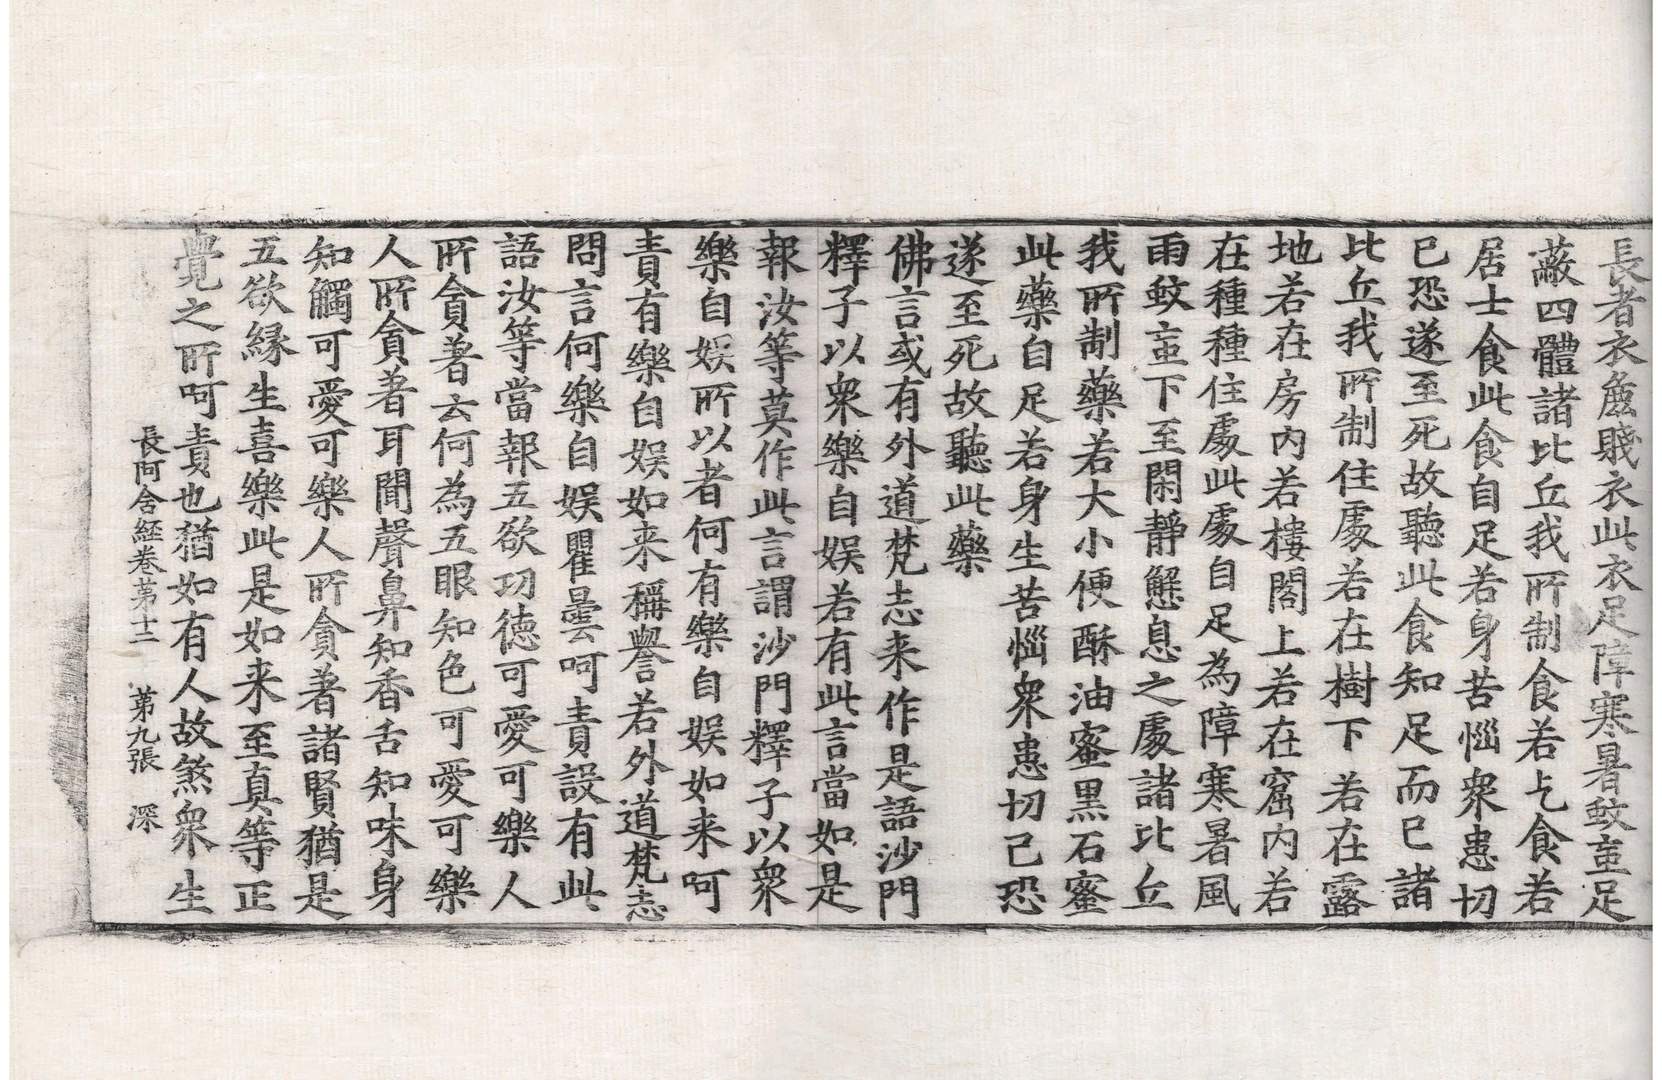 長者衣麁賤衣此衣足障寒暑蚊䖟足
蔽四體諸比丘我所制食若乞食若
居士食此食自足若身苦惱衆患切
已恐遂至死故聽此食知足而已諸
比丘我所制住處若在樹下若在露
地若在房内若樓閣上若在窟内若
在種種住處此處自足為障寒暑風
雨蚊䖟下至閑靜懈息之處諸比丘
我所制藥若大小便酥油蜜黑石蜜
此藥自足若身生苦惱衆患切已恐
遂至死故聽此藥
佛言或有外道梵志来作是語沙門
釋子以衆樂自娱若有此言當如是
報汝等莫作此言謂沙門釋子以衆
樂自娱所以者何有樂自娱如来呵
責有樂自娱如来稱譽若外道梵志
問言何樂自娱瞿曇呵責設有此
語汝等當報五欲功德可愛可樂人
所貪著云何為五眼知色可愛可樂
人所貪著耳聞聲鼻知香舌知味身
知觸可愛可樂人所貪著諸賢猶是
五欲縁生喜樂此是如来至真等正
覺之所呵責也猶如有人故煞衆生
長阿含経卷苐十二 苐九張 深